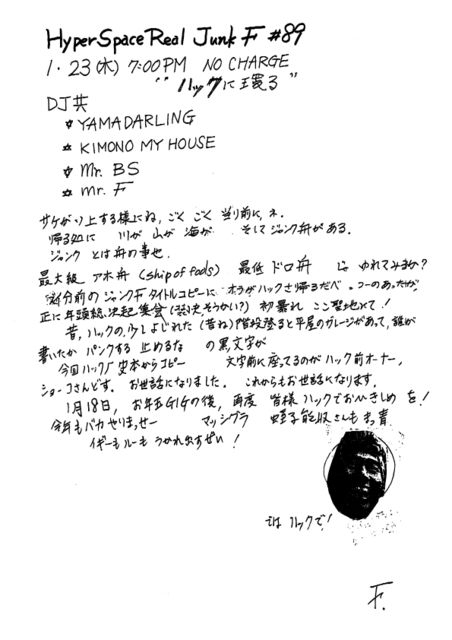 HyperSpace Real Junk F #89
1・23(木) 7:00PM NO CHARGE
"ハックに環る"
DJ共
☆ YAMADARLING
☆ KIMONO MY HOUSE
☆ Mr. BS
☆ mr. F
サケがソ上する様にね、ごくごく当り前に、ネ。
帰る処に 川が 山が 海が そしてジャンク舟がある。
ジャンク とは舟の事也。
最大級 アホ舟 (ship of fools) 最低 ドロ舟 ゆれてみるか?
前のジャンクF タイトルコピーに オラがハックさ帰るだべ。つーのあったが、
正に年頭総決起集会 初暴れ ここ聖地にて!
昔、ハックの少しよじれた (昔ね) 階段登ると平屋のガレージがあって、誰が
書いたか パンクする 止めるな の黒文字が
今回ハック 史本からコピー 文字前に座ってるのがハック前オーナー、
ショーコさんどす。 お世話になりました。 これからもお世話になります。
1月18日, お年玉GIGの後, 再度 皆様 ハックでおひきしめ を!
今年もバカやりませー マッシブラ 蛭子能収さんもまっ青
イギーもルーも うかれ出すぜい!
では ハックで!
F.